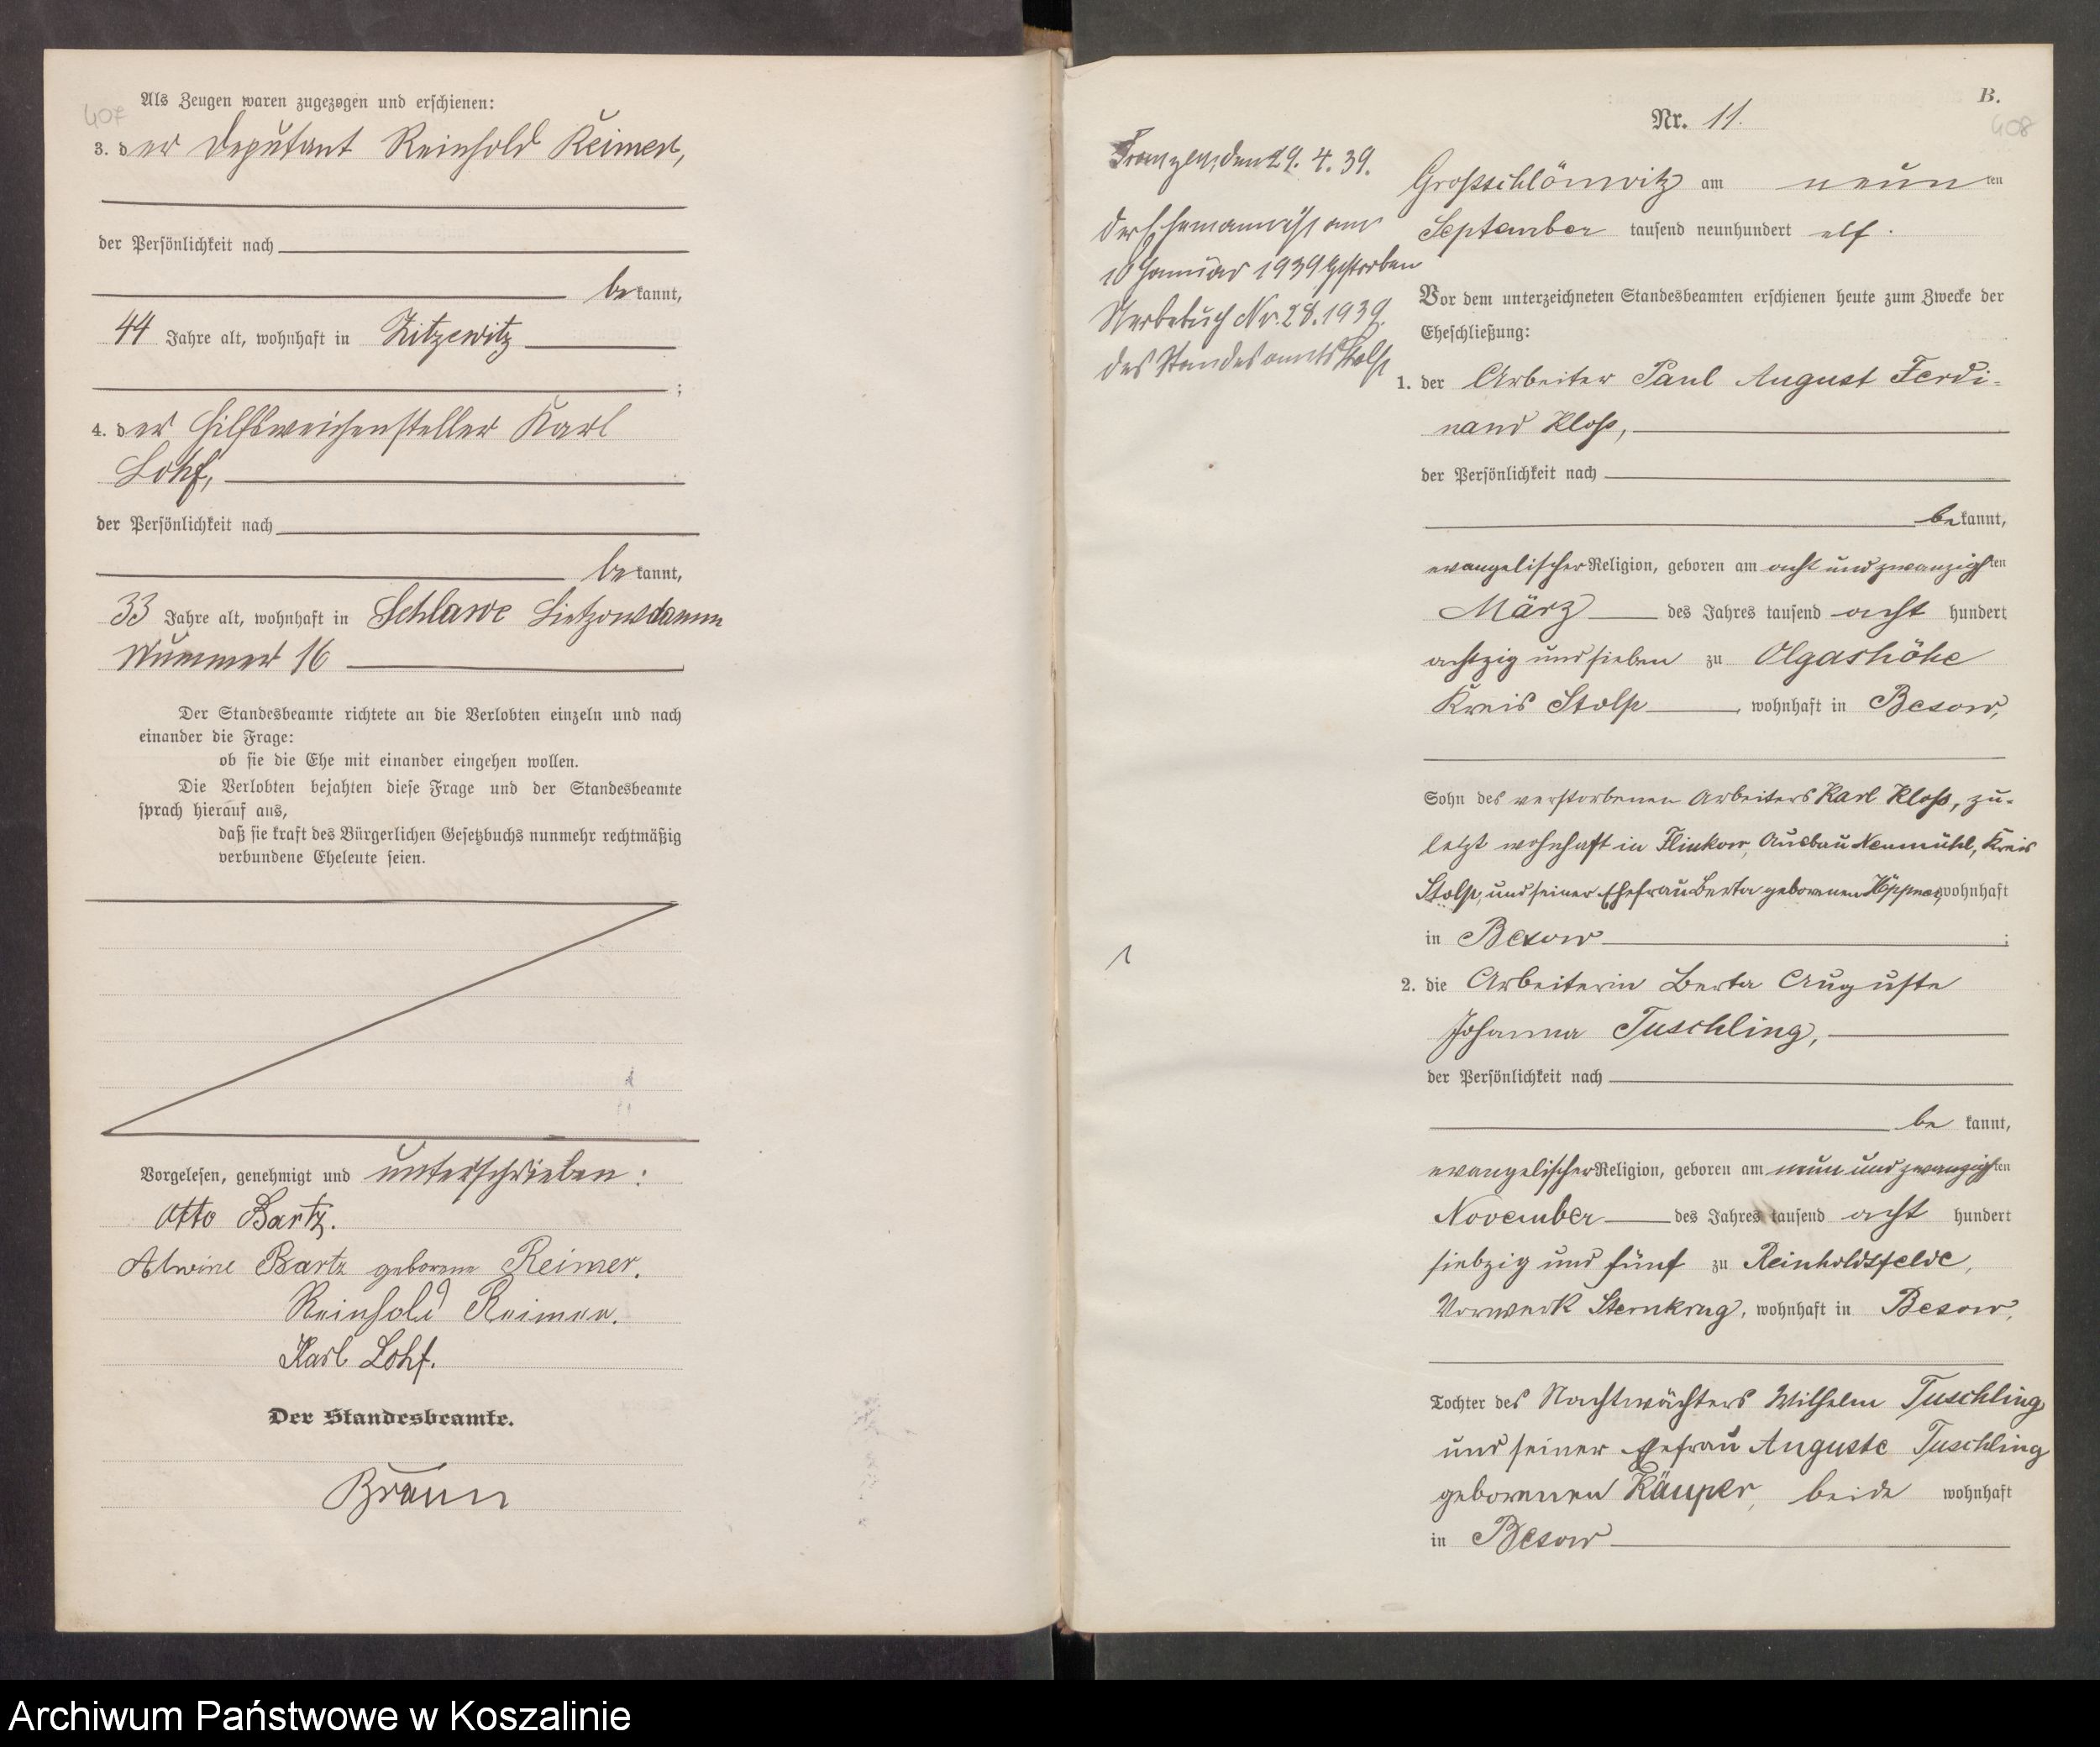 407
Als Zeugen waren zugezogen und erschienen:
3. der Deputant Reinhold Reimer,
der Persönlichkeit nach
bekannt,
44 Jahre alt, wohnhaft in Zitzewitz
;
4. der Hilfsweichensteller Karl
Lohf,
der Persönlichkeit nach
bekannt,
33 Jahre alt, wohnhaft in Schlawe
Nummer 16
Der Standesbeamte richtete an die Verlobten einzeln und nach
einander die Frage:
ob sie die Ehe mit einander eingehen wollen.
Die Verlobten bejahten diese Frage und der Standesbeamte
sprach hierauf aus,
daß sie kraft des Bürgerlichen Gesetzbuchs nunmehr rechtmäßig
verbundene Eheleute seien.
Vorgelesen, genehmigt und unterschrieben:
Otto Bartz.
Alwine Bartz geborene Reimer.
Reinhold Reimer.
Karl Lohf.
Der Standesbeamte.
Braun
B.
408
Nr. 11.
Franzen, den 29. 4. 39.
Der Ehemann ist am
10 Januar 1939 gestorben
Sterbebuch Nr. 28.1939.
des Standesamts Stolp
Großschlönwitz am neunten
September tausend neunhundert elf.
Vor dem unterzeichneten Standesbeamten erschienen heute zum Zwecke der
Eheschließung:
1. der Arbeiter Paul August Ferdi-
nand Kloß,
der Persönlichkeit nach
bekannt,
evangelischer Religion, geboren am acht und zwanzigsten
März des Jahres tausend acht hundert
achtzig und sieben zu Olgashöhe
Kreis Stolp, wohnhaft in Besow,
Sohn des verstorbenen Arbeiters Karl Kloß, zu-
letzt wohnhaft in Flinkow, Ausbau Neumühl, Kreis
Stolp, und seiner Ehefrau Berta geborenen Höppner, wohnhaft
in Besow;
2. die Arbeiterin Berta Auguste
Johanna Tuschling,
der Persönlichkeit nach
bekannt,
evangelischer Religion, geboren am neun und zwanzigsten
November des Jahres tausend acht hundert
siebzig und fünf zu Reinholdsfelde,
Vorwerk Sternkrug, wohnhaft in Besow,
Tochter des Nachtwächters Wilhelm Tuschling
und seiner Ehefrau Auguste Tuschling
geborenen Käuper, beide wohnhaft
in Besow
Archiwum Państwowe w Koszalinie